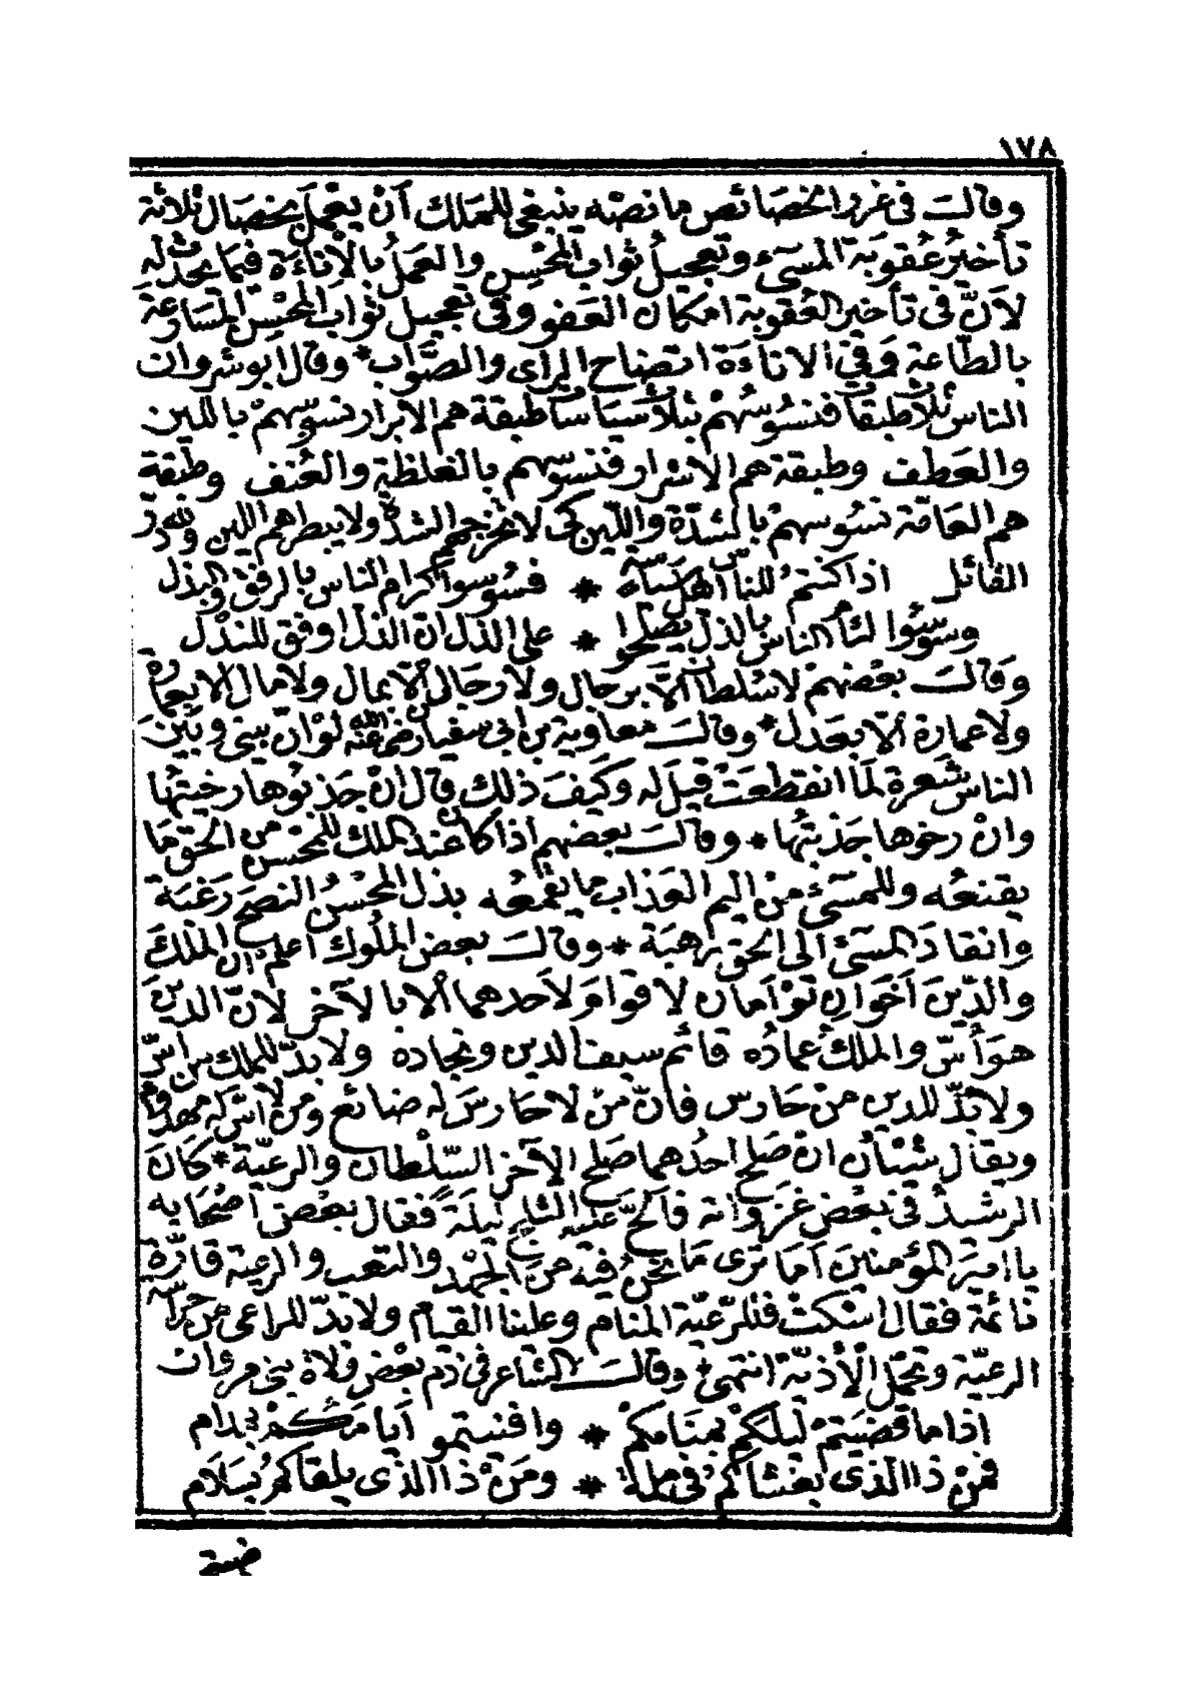 ١٧٨
وقال فى غرر الخصائص ما نصّه ينبغى للملك أن يعمل بخصال ثلاثة
تأخير عُقوبة المسىء وتعجيلُ ثواب المحْسن والعملُ بالأناءة فيما يحدث له
لأنّ فى تأخير العُقوبة امكان العفو وفى تعجيل ثواب المحْسن المسَارعة
بالطّاعة وَفى الاناءَة اتضاح الرأى والصّواب * وقال انوشروان
الناس ثلاث طبقات فنسُوسُهمْ بثلاث سياسات طبقة هم الأبرار نسوسهمْ باللين
والعَطف وطبقة هم الأشرار فنسوسهم بالغلظة والعُنف وطبقة
هم العَامّة نسُوسهمْ بالشدّة واللّين كى لا تخرجهم الشدّة ولا يبطرهم اللين ولله درّ
القائل اذا كنتمُ للناس اهل سياسة * فسُوسوا كرام الناس بالرفق والبذل
وسُوسُوا لئام الناس بالذلّ يصلحوا * على الذل ان الذل اوفق للنذل
وَقال بعْضهمْ لا سُلطان الّا برجال ولا رجال الّا بمال ولا مال الا بعمارة
ولا عمارة الّا بعدل * وقال معاوية بن ابى سفيان رضى الله عنه لوْ انّ بينى وبين
الناس شَعرة لمَا انقطعَتْ قيل له وكيفَ ذلك قال انْ جَذبُوها رخيتُها
وانْ رخوها جَذبتُها * وقال بعضهم اذا كان عند الملك للمحْسن من الحقّ ما
يقنعُه وللمسىء منْ اليم العَذاب ما يقمعُه بذل المحْسنُ النصح رَغبَة
وانقادَ المسىء الى الحق رهبَة * وقال بعض الملُوك اعلم ان الملك
والدّينَ اخَوان توْأمان لا قوامَ لأحدهما الّا بالآخر لأنّ الدين
هوَ أسّ والملكُ عمادُه قائم سيف الدين ونجاده ولا بدّ للملك من أسّ
ولا بدّ للدين منْ حَارس فانّ منْ لا حَارسَ له ضائع ومنْ لا اسّ له مهدوم
ويقال شيئان انْ صَلح احدُهما صَلح الآخر السّلطان والرعيّة * كَانَ
الرشيدُ فى بعْض غزواته فألحّ عَليه الثلج ليلةً فقال بعْض أصْحَابه
يا اميرَ المؤمنين أمَا ترى مَا نحْنُ فيه منَ الجهْد والتعب والرعية قارّة
نائمة فقال اسْكتْ فللرّعيّة المنام وعلينا القيام ولا بدّ للراعى من حراسة
الرعيّة وتحمّل الأذيّة انتهى * وقال الشاعر فى ذم بعْض ولاة بنى مروان
اذا ما قضيتمْ ليلكمْ بمنَامكمْ * وافنيتمو أيامَكمْ بمدام
فمنْ ذا الذى يغشاكمُ فى ملمّة * ومَنْ ذا الذى يلقاكمُ بسَلام